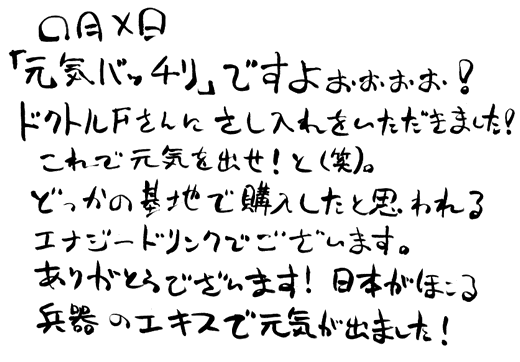 〇月×日
「元気バッチリ」ですよぉぉぉぉ!
ドクトルFさんに さし入れをいただきました!
これで元気を出せ!と(笑)。
どっかの基地で購入したと思われる
エナジードリンクでございます。
ありがとうございます! 日本がほこる
兵器のエキスで元気が出ました!